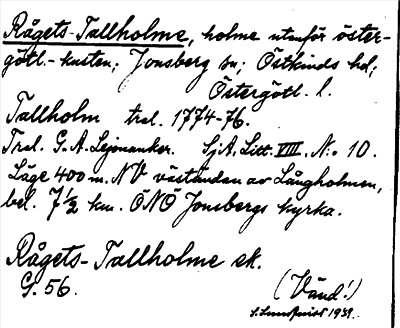 Rågets-Tallholme, holme utanför öster-
götl.-kusten; Jonsberg sn; Östkinds hd;
Östergötl. l.
Tallholm tral. 1774-76.
Tral. G. A. Leijonanker. SjA, Litt. VIII, No 10.
Läge 400 m. NV väständan av Långholmen,
bel. 7 1/2 km. ÖNÖ Jonsbergs kyrka.
Rågets-Tallholme sk.
G. 56.
(Vänd!)
S. Lundqvist 1931.